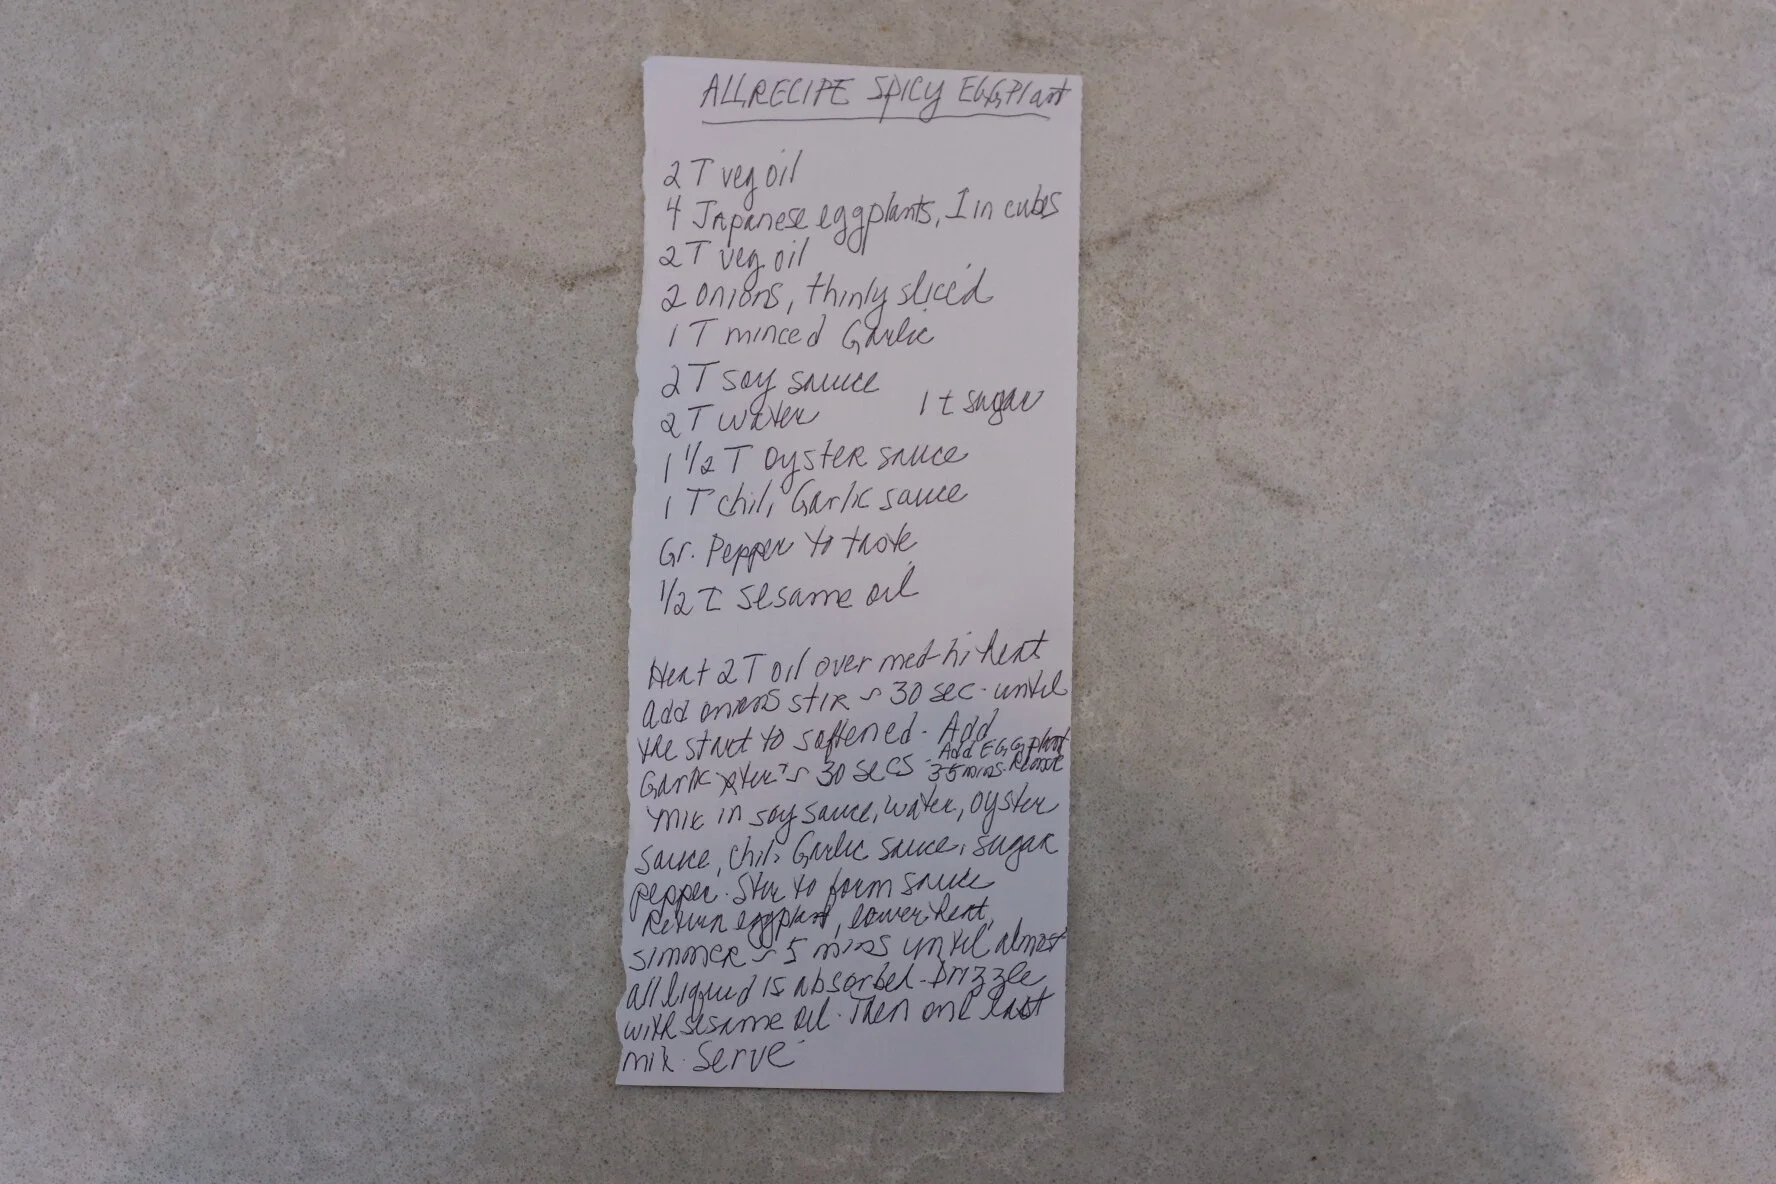 ALLRECIPE SPICY EGGPlant
2 T veg oil
4 Japanese eggplants, 1 in cubes
2 T veg oil
2 onions, thinly sliced
1 T minced Garlic
2 T soy sauce
2 T water 1 t sugar
1 1/2 T oyster sauce
1 T chili Garlic sauce
Gr. Pepper to taste
1/2 T sesame oil
Heat 2 T oil over med-hi heat
add onions stir ~ 30 sec. until
the start to softened. Add
Garlic ~ 30 secs.
Add EGGplant
35 mins. Remove
Mix in soy sauce, water, oyster
sauce, chili Garlic sauce, sugar
pepper. Stir to form sauce
Return eggplant, lower heat,
simmer ~ 5 mins until almost
all liquid is absorbed. Drizzle
with sesame oil. Then one last
mix. Serve